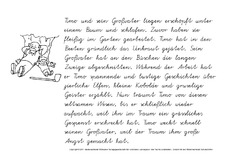 Timo und sein Großvater liegen erschöpft unter
einem Baum und schlafen. Zuvor haben sie
fleißig im Garten gearbeitet. Timo hat in den
Beeten gründlich das Unkraut gejätet. Sein
Großvater hat an den Büschen die langen
Zweige abgeschnitten. Während der Arbeit hat
er Timo spannende und lustige Geschichten über
zierliche Elfen, kleine Kobolde und gruselige
Geister erzählt. Nun träumt Timo von diesen
seltsamen Wesen, bis er schließlich wieder
aufwacht, weil ihn im Traum ein grässliches
Gespenst erschreckt hat. Timo weckt schnell
seinen Großvater, weil der Traum ihm große
Angst gemacht hat.